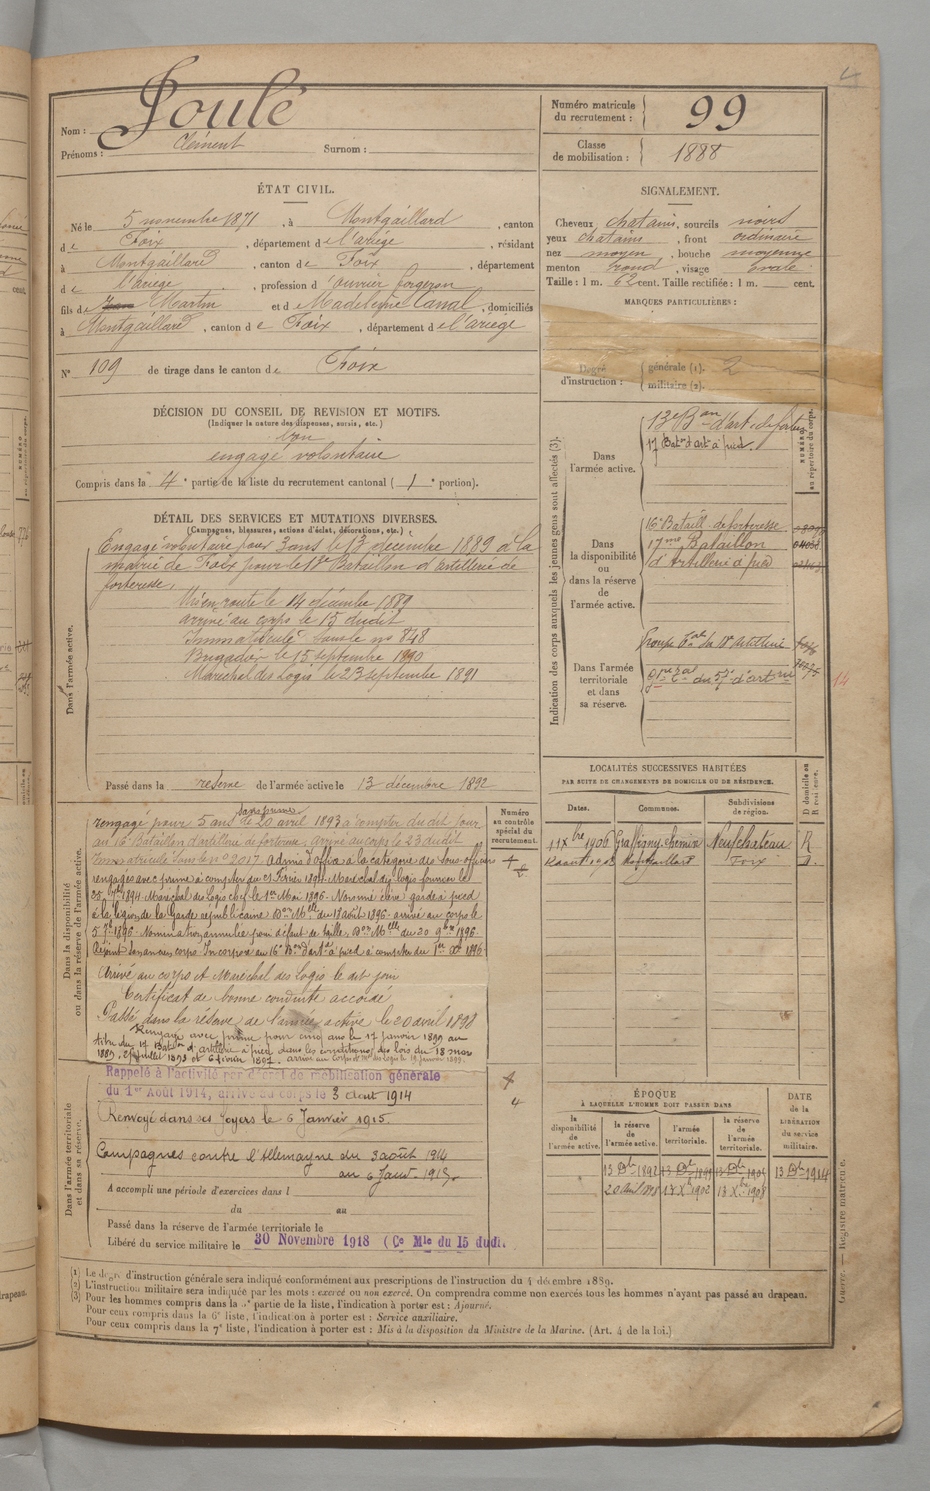 4
Nom : Soulé
Prénoms : Clément Surnom :
Numéro matricule du recrutement : 99
Classe de mobilisation : 1888
ÉTAT CIVIL.
Né le 5 novembre 1871, à Montgaillard, canton
de Foix, département de l'ariège, résidant
à Montgaillard, canton de Foix, département
de l'ariège, profession d'ouvrier forgeron
fils de Martin et de Madeleine Canal, domiciliés
à Montgaillard, canton de Foix, département de l'ariège
N° 109 de tirage dans le canton de Foix
SIGNALEMENT.
Cheveux chatains, sourcils noirs
yeux chatains, front ordinaire
nez moyen, bouche moyenne
menton rond, visage ovale
Taille : 1 m. 62 cent. Taille rectifiée : 1 m. cent.
MARQUES PARTICULIÈRES :
Degré d'instruction : générale (1). 2
militaire (2).
DÉCISION DU CONSEIL DE REVISION ET MOTIFS.
(Indiquer la nature des dispenses, sursis, etc.)
Bon
engagé volontaire
Compris dans la 4e partie de la liste du recrutement cantonal ( 1e portion).
DÉTAIL DES SERVICES ET MUTATIONS DIVERSES.
(Campagnes, blessures, actions d'éclat, décorations, etc.)
Dans l'armée active.
Engagé volontaire pour 3 ans le 13 décembre 1889 à la
mairie de Foix pour le Bataillon d'artillerie de
forteresse,
Mis en route le 14 décembre 1889
arrivé au corps le 15 dudit
Immatriculé sous le no 848
Brigadier le 15 septembre 1890
Maréchal des Logis le 23 septembre 1891
Passé dans la reserve de l'armée active le 13 décembre 1892
Indication des corps auxquels les jeunes gens sont affectés (3).
NUMÉRO au répertoire du corps.
Dans l'armée active.
13e Bon d'art. de forter
17 Baton d'art. à pied.
Dans la disponibilité ou dans la réserve de l'armée active.
16e Bataill de forteresse
17me Bataillon
d'Artillerie à pied
Dans l'armée territoriale et dans sa réserve.
Groupe Tal du 18e artillerie
14
LOCALITÉS SUCCESSIVES HABITÉES
PAR SUITE DE CHANGEMENTS DE DOMICILE OU DE RÉSIDENCE.
Dates. Communes. Subdivisions de région. D domicile ou R résidence.
11 Xbre 1906 Graffigny-Chemin Neufchateau R
Montgaillard Foix D.
Dans la disponibilité ou dans la réserve de l'armée active.
Numéro au contrôle spécial du recrutement.
sans prime
rengagé pour 5 ans le 20 avril 1893 à compter du dit jour
au 16e Bataillon d'artillerie de forteresse, Arrivé au corps le 23 dudit
Immatriculé sous le no 2017. Admis d'office à la catégorie des sous-officiers
rengagés avec prime à compter du Février 1894. Maréchal des logis fourrier le
25 7bre 1894. Maréchal des Logis chef le 1er Mai 1896. Nommé élève garde à pied
à la légion de la Garde républicaine Don Mlle du 18 août 1896. arrivé au corps le
5 7bre 1896. Nomination annulée pour défaut de taille. Don Mlle du 20 9bre 1896.
Rejoint son ancien corps. Incorporé au 16e Bon d'artie à pied à compter du 1er Xbre 1896
Arrivé au corps et Maréchal des Logis le dit jour
Certificat de bonne conduite accordé
Passé dans la réserve de l'armée active le 20 avril 1898
Rengagé avec prime pour cinq ans le 17 janvier 1899 au
titre du 17 Baton d'artillerie à pied dans les conditions des lois du 18 mars
1889, juillet 1893 et 6 février 1897. arrivé au corps et Mal des logis le 19 janvier 1899
Dans l'armée territoriale et dans sa réserve.
Rappelé à l'activité par décret de mobilisation générale
du 1er Août 1914, arrivé au corps le 3 août 1914
Renvoyé dans ses foyers le 6 Janvier 1915.
Campagnes contre l'Allemagne du 3 août 1914
au 6 Janv. 1915.
A accompli une période d'exercices dans l
du au
Passé dans la réserve de l'armée territoriale le
Libéré du service militaire le 30 Novembre 1918 (Ce Mle du 15 dudit.
ÉPOQUE
A LAQUELLE L'HOMME DOIT PASSER DANS
la disponibilité de l'armée active. la réserve de l'armée active. l'armée territoriale. la réserve de l'armée territoriale. DATE de la LIBÉRATION du service militaire.
13 Dbre 1892 13 Dbre 1899 13 Dbre 1905 13 Dbre 1914
20 Avril 1898 13 Xbre 1902 13 Xbre 1908
(1) Le degré d'instruction générale sera indiqué conformément aux prescriptions de l'instruction du 4 décembre 1889.
(2) L'instruction militaire sera indiquée par les mots : exercé ou non exercé. On comprendra comme non exercés tous les hommes n'ayant pas passé au drapeau.
(3) Pour les hommes compris dans la partie de la liste, l'indication à porter est : Ajourné.
Pour ceux compris dans la 6e liste, l'indication à porter est : Service auxiliaire.
Pour ceux compris dans la 7e liste, l'indication à porter est : Mis à la disposition du Ministre de la Marine. (Art. 4 de la loi.)
Guerre. — Registre matricule.